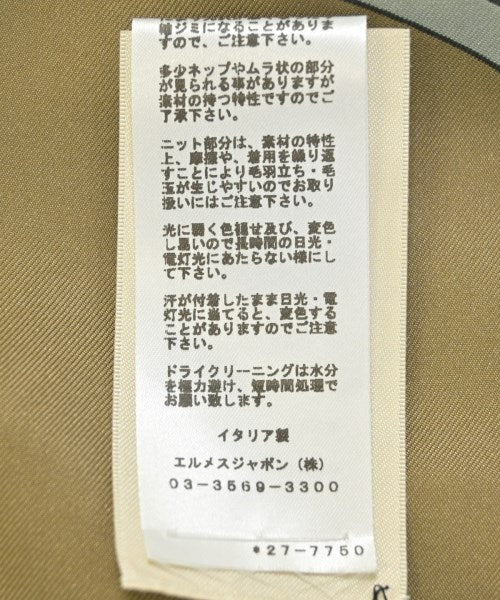 ジミになることがありま
すので、ご注意下さい。
多少ネップやムラ状の部分
が見られる事がありますが
素材の持つ特性ですのでご
了承下さい。
ニット部分は、素材の特性
上、摩擦や、着用を繰り返
すことにより毛羽立ち・毛
玉が生じやすいのでお取り
扱いにはご注意下さい。
光に弱く色褪せ及び、変色
し易いので長時間の日光・
電灯光にあたらない様にし
て下さい。
汗が付着したまま日光・電
灯光に当てると、変色する
ことがありますのでご注意
下さい。
ドライクリーニングは水分
を極力避け、短時間処理で
お願い致します。
イタリア製
エルメスジャポン（株）
03-3569-3300
*27-7750